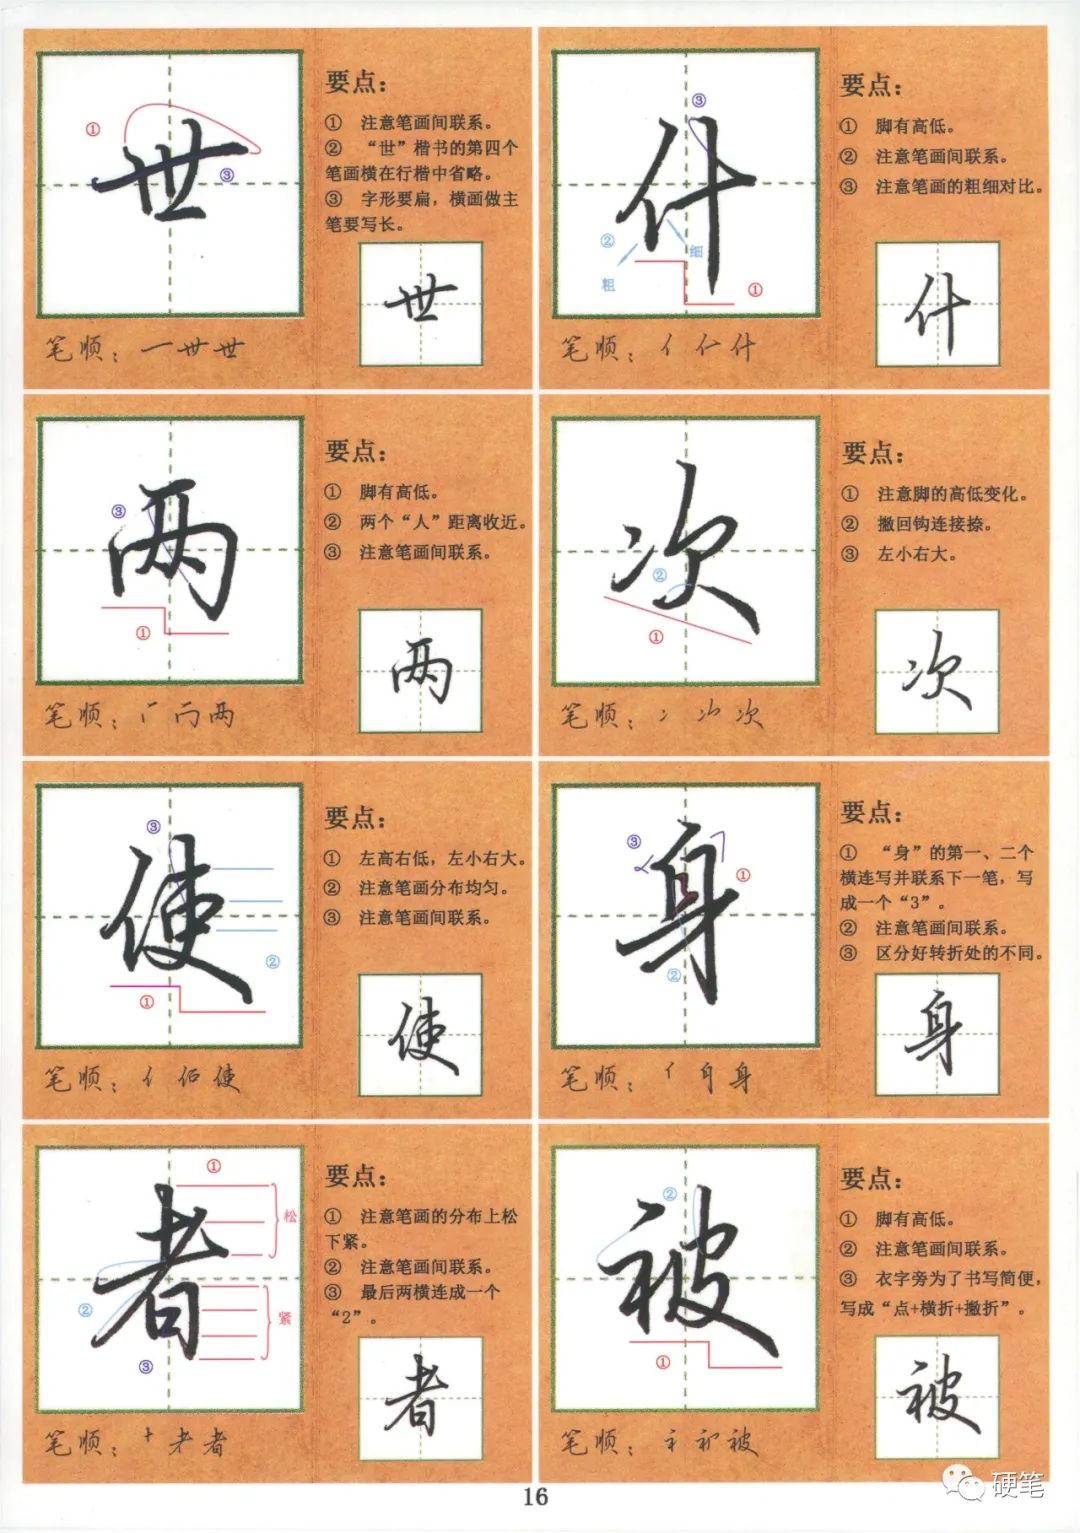 世
①
③
要点：
① 注意笔画间联系。
② “世”楷书的第四个
笔画横在行楷中省略。
③ 字形要扁，横画做主
笔要写长。
世
笔顺：一 世 世
什
③
②
粗
细
①
要点：
① 脚有高低。
② 注意笔画间联系。
③ 注意笔画的粗细对比。
什
笔顺：亻 什
两
③
①
要点：
① 脚有高低。
② 两个“人”距离收近。
③ 注意笔画间联系。
两
笔顺：两
次
②
①
要点：
① 注意脚的高低变化。
② 撇回钩连接捺。
③ 左小右大。
次
笔顺：冫 次
使
③
②
①
要点：
① 左高右低，左小右大。
② 注意笔画分布均匀。
③ 注意笔画间联系。
使
笔顺：亻 使
身
③
①
②
要点：
① “身”的第一、二个
横连写并联系下一笔，写
成一个“3”。
② 注意笔画间联系。
③ 区分好转折处的不同。
身
笔顺：身
者
①
松
②
紧
③
要点：
① 注意笔画的分布上松
下紧。
② 注意笔画间联系。
③ 最后两横连成一个
“2”。
者
笔顺：十 耂 者
被
②
①
要点：
① 脚有高低。
② 注意笔画间联系。
③ 衣字旁为了书写简便，
写成“点+横折+撇折”。
被
笔顺：被
16
硬笔